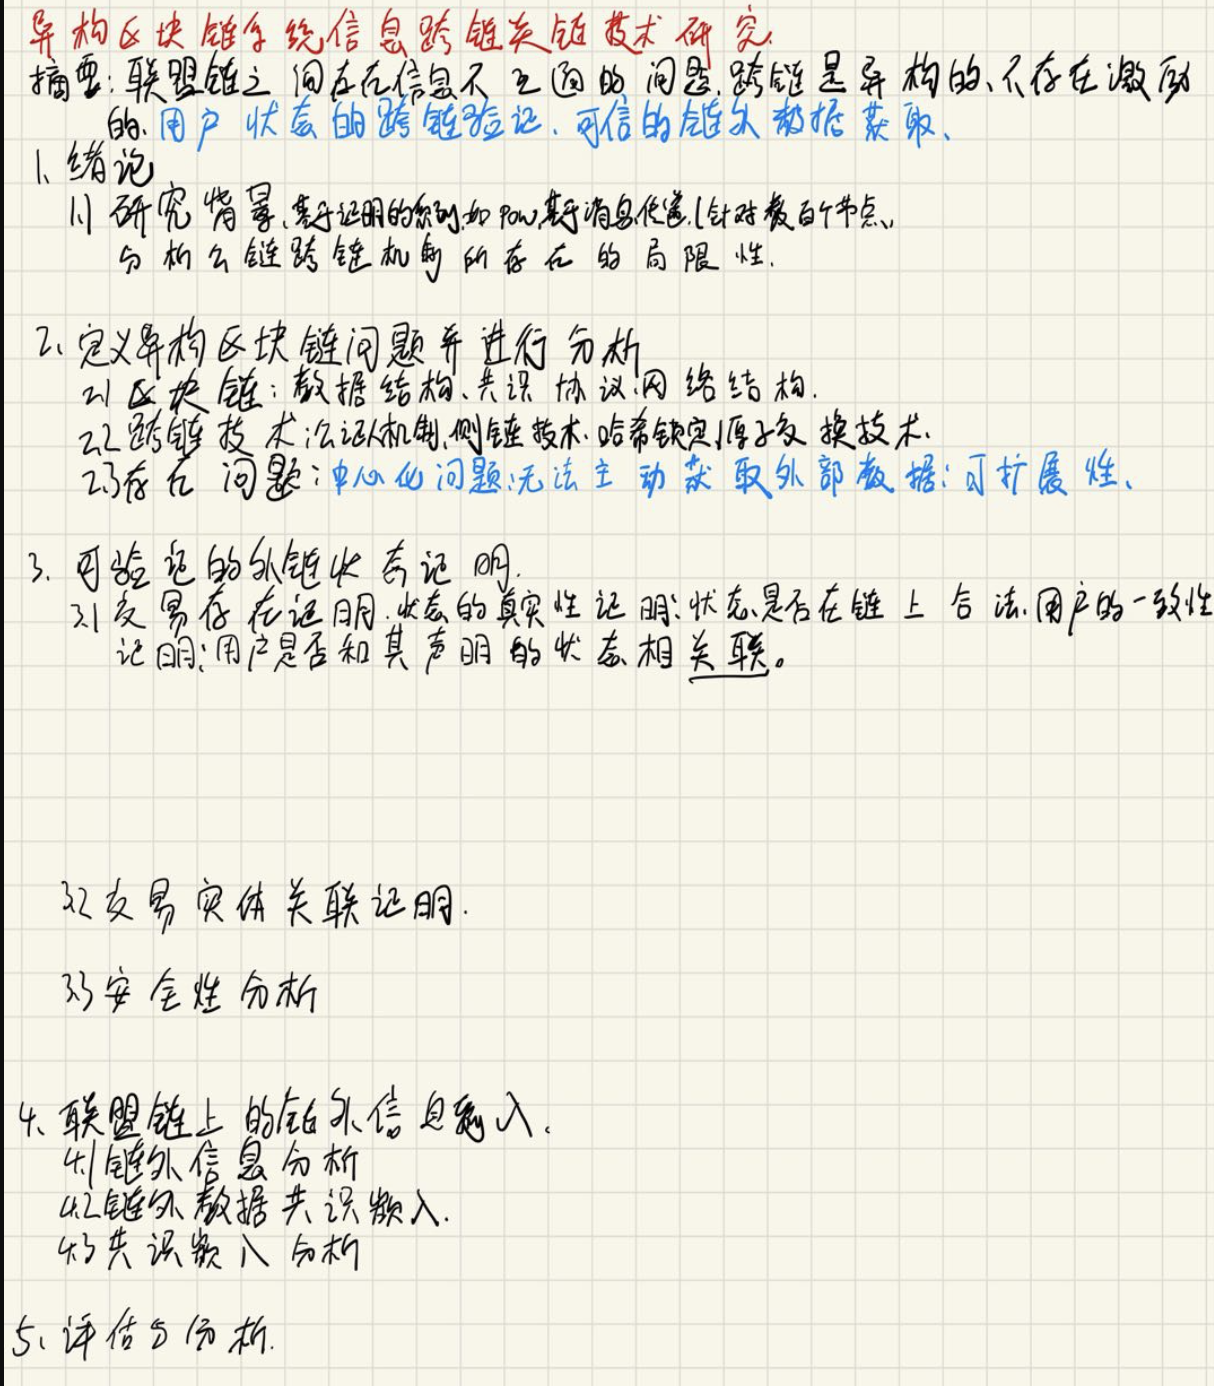 异构区块链系统信息跨链关键技术研究.
摘要:联盟链之间存在信息不互通的问题.跨链是异构的、不存在激励
的.用户状态的跨链验证、可信的链外数据获取、
1、绪论
1.1 研究背景.基于证明的系列,如pow,基于消息传递.(针对数百个节点,
分析公链跨链机制所存在的局限性.
2、定义异构区块链问题并进行分析
2.1 区块链:数据结构、共识协议.网络结构.
2.2 跨链技术:公证人机制,侧链技术.哈希锁定,原子交换技术.
2.3存在问题:中心化问题;无法主动获取外部数据;可扩展性、
3、可验证的外链状态证明.
3.1 交易存在证明.状态的真实性证明:状态是否在链上合法.用户的一致性
证明:用户是否和其声明的状态相关联。
3.2 交易实体关联证明.
3.3 安全性分析
4、联盟链上的链外信息入.
4.1链外信息分析
4.2链外数据共识入.
4.3共识入分析
5、评估与分析.